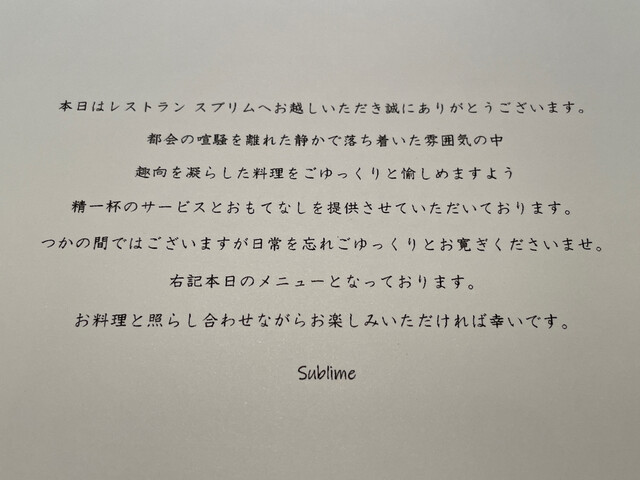 本日はレストラン スブリムへお越しいただき誠にありがとうございます。
都会の喧騒を離れた静かで落ち着いた雰囲気の中
趣向を凝らした料理をごゆっくりと愉しめますよう
精一杯のサービスとおもてなしを提供させていただいております。
つかの間ではございますが日常を忘れごゆっくりとお寛ぎくださいませ。
右記本日のメニューとなっております。
お料理と照らし合わせながらお楽しみいただければ幸いです。
Sublime